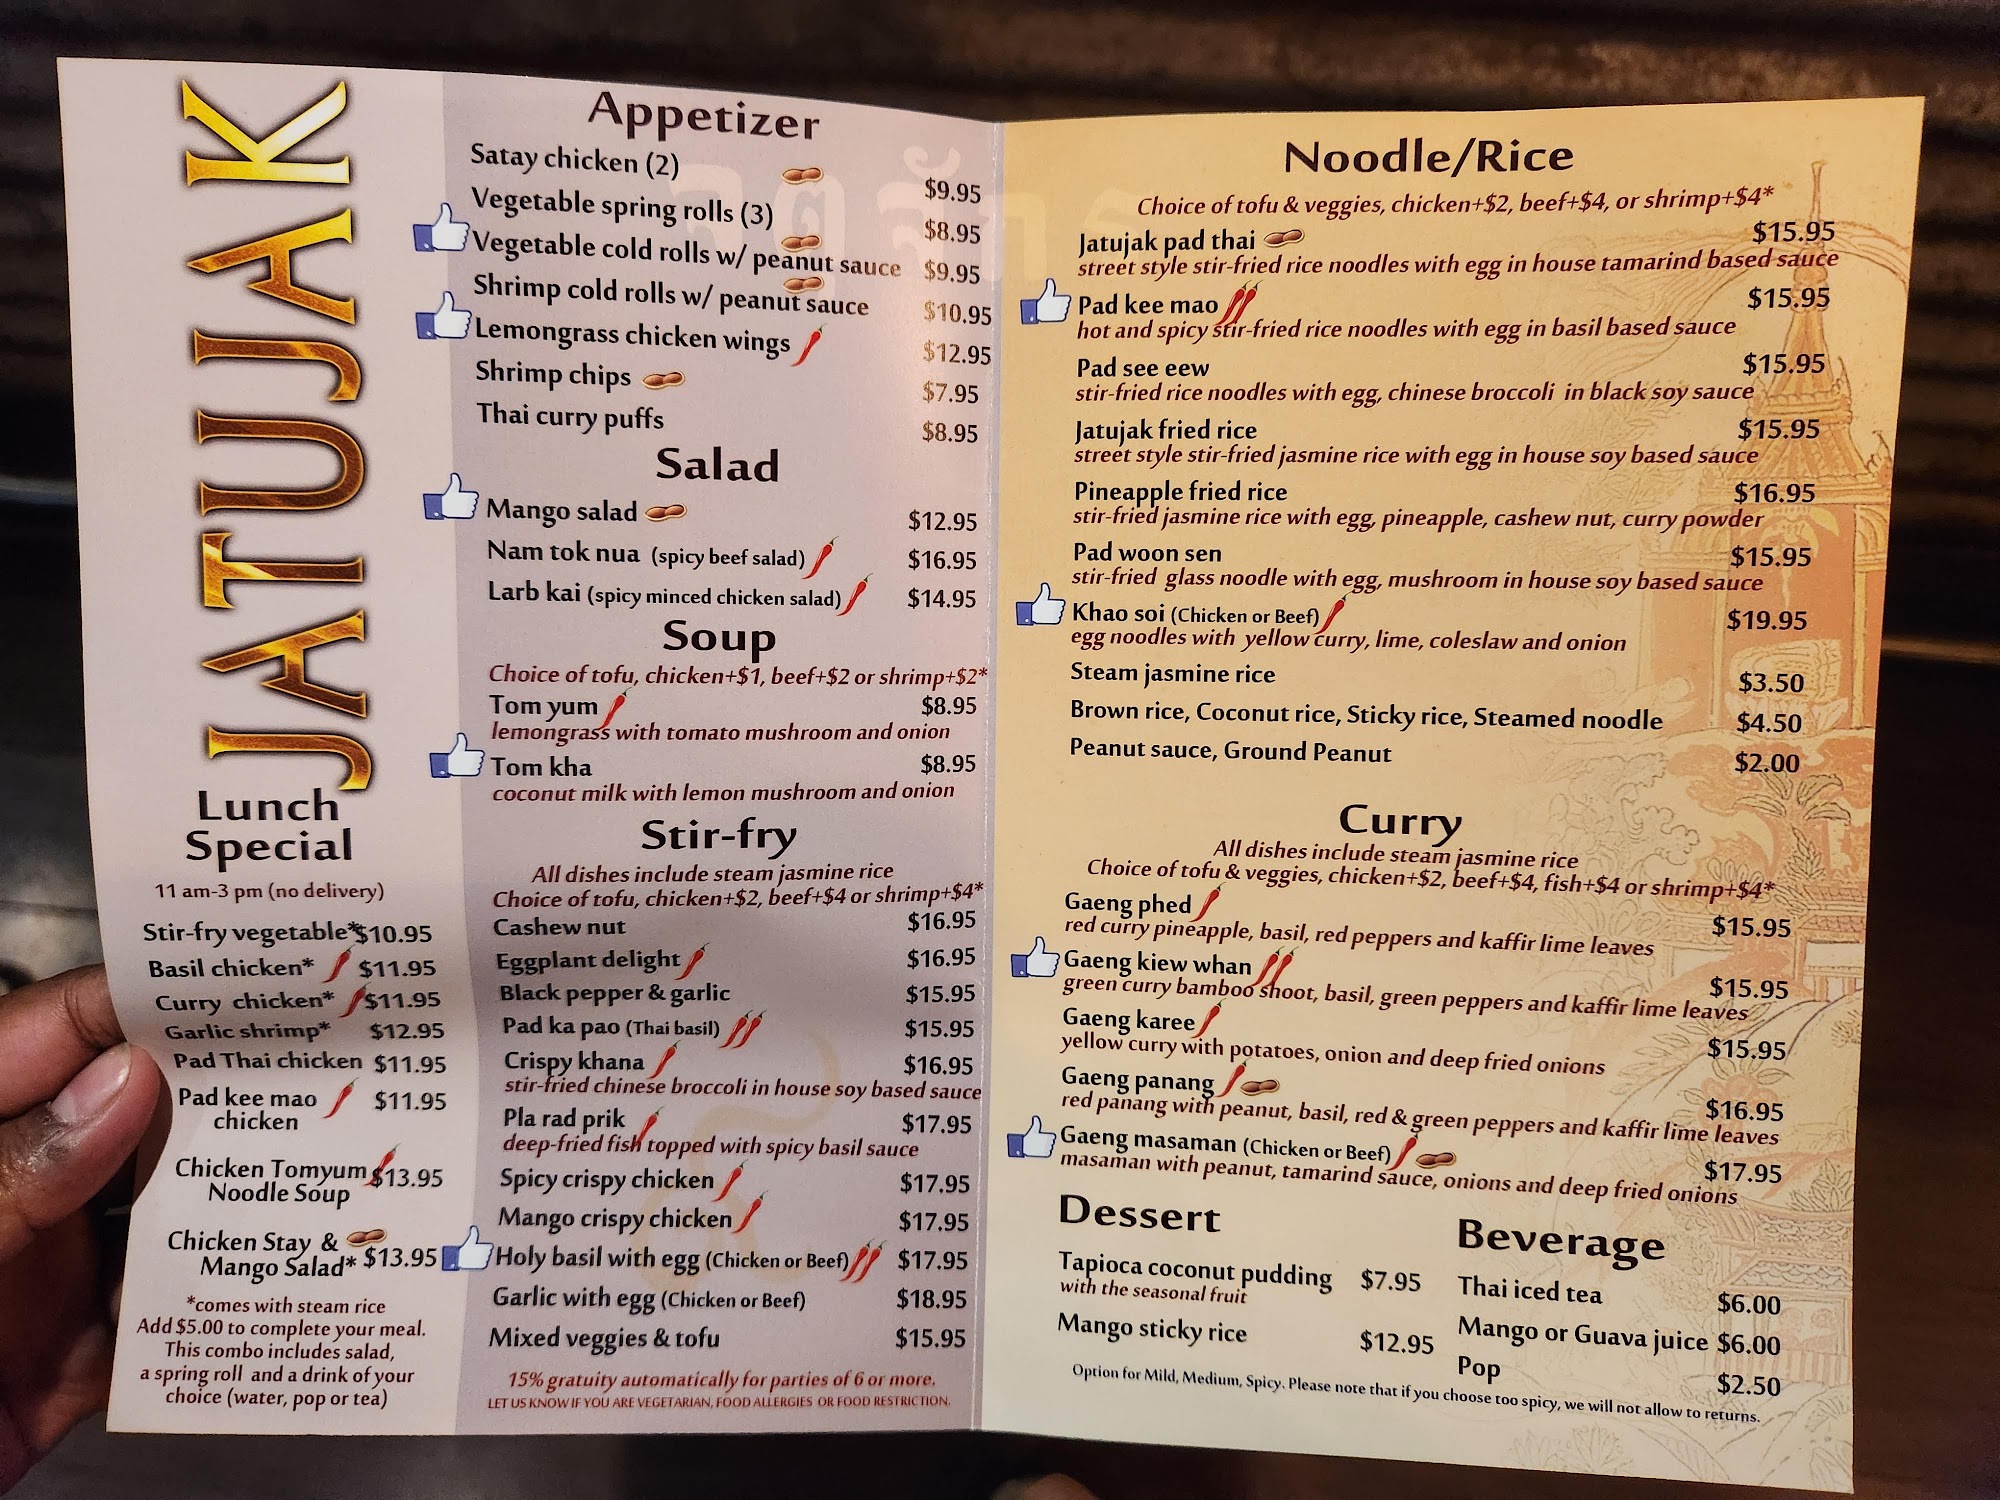 JATUJAK
Lunch
Special
11 am-3 pm (no delivery)
Stir-fry vegetable* $10.95
Basil chicken* $11.95
Curry chicken* $11.95
Garlic shrimp* $12.95
Pad Thai chicken $11.95
Pad kee mao $11.95
chicken
Chicken Tomyum $13.95
Noodle Soup
Chicken Stay &
Mango Salad* $13.95
*comes with steam rice
Add $5.00 to complete your meal.
This combo includes salad,
a spring roll and a drink of your
choice (water, pop or tea)
Appetizer
Satay chicken (2) $9.95
Vegetable spring rolls (3) $8.95
Vegetable cold rolls w/ peanut sauce $9.95
Shrimp cold rolls w/ peanut sauce $10.95
Lemongrass chicken wings $12.95
Shrimp chips $7.95
Thai curry puffs $8.95
Salad
Mango salad $12.95
Nam tok nua (spicy beef salad) $16.95
Larb kai (spicy minced chicken salad) $14.95
Soup
Choice of tofu, chicken+$1, beef+$2 or shrimp+$2*
Tom yum $8.95
lemongrass with tomato mushroom and onion
Tom kha $8.95
coconut milk with lemon mushroom and onion
Stir-fry
All dishes include steam jasmine rice
Choice of tofu, chicken+$2, beef+$4 or shrimp+$4*
Cashew nut $16.95
Eggplant delight $16.95
Black pepper & garlic $15.95
Pad ka pao (Thai basil) $15.95
Crispy khana $16.95
stir-fried chinese broccoli in house soy based sauce
Pla rad prik $17.95
deep-fried fish topped with spicy basil sauce
Spicy crispy chicken $17.95
Mango crispy chicken $17.95
Holy basil with egg (Chicken or Beef) $17.95
Garlic with egg (Chicken or Beef) $18.95
Mixed veggies & tofu $15.95
15% gratuity automatically for parties of 6 or more.
LET US KNOW IF YOU ARE VEGETARIAN, FOOD ALLERGIES OR FOOD RESTRICTION.
Noodle/Rice
Choice of tofu & veggies, chicken+$2, beef+$4, or shrimp+$4*
Jatujak pad thai $15.95
street style stir-fried rice noodles with egg in house tamarind based sauce
Pad kee mao $15.95
hot and spicy stir-fried rice noodles with egg in basil based sauce
Pad see eew $15.95
stir-fried rice noodles with egg, chinese broccoli in black soy sauce
Jatujak fried rice $15.95
street style stir-fried jasmine rice with egg in house soy based sauce
Pineapple fried rice $16.95
stir-fried jasmine rice with egg, pineapple, cashew nut, curry powder
Pad woon sen $15.95
stir-fried glass noodle with egg, mushroom in house soy based sauce
Khao soi (Chicken or Beef) $19.95
egg noodles with yellow curry, lime, coleslaw and onion
Steam jasmine rice $3.50
Brown rice, Coconut rice, Sticky rice, Steamed noodle $4.50
Peanut sauce, Ground Peanut $2.00
Curry
All dishes include steam jasmine rice
Choice of tofu & veggies, chicken+$2, beef+$4, fish+$4 or shrimp+$4*
Gaeng phed $15.95
red curry pineapple, basil, red peppers and kaffir lime leaves
Gaeng kiew whan $15.95
green curry bamboo shoot, basil, green peppers and kaffir lime leaves
Gaeng karee $15.95
yellow curry with potatoes, onion and deep fried onions
Gaeng panang $16.95
red panang with peanut, basil, red & green peppers and kaffir lime leaves
Gaeng masaman (Chicken or Beef) $17.95
masaman with peanut, tamarind sauce, onions and deep fried onions
Dessert
Tapioca coconut pudding $7.95
with the seasonal fruit
Mango sticky rice $12.95
Beverage
Thai iced tea $6.00
Mango or Guava juice $6.00
Pop $2.50
Option for Mild, Medium, Spicy. Please note that if you choose too spicy, we will not allow to returns.